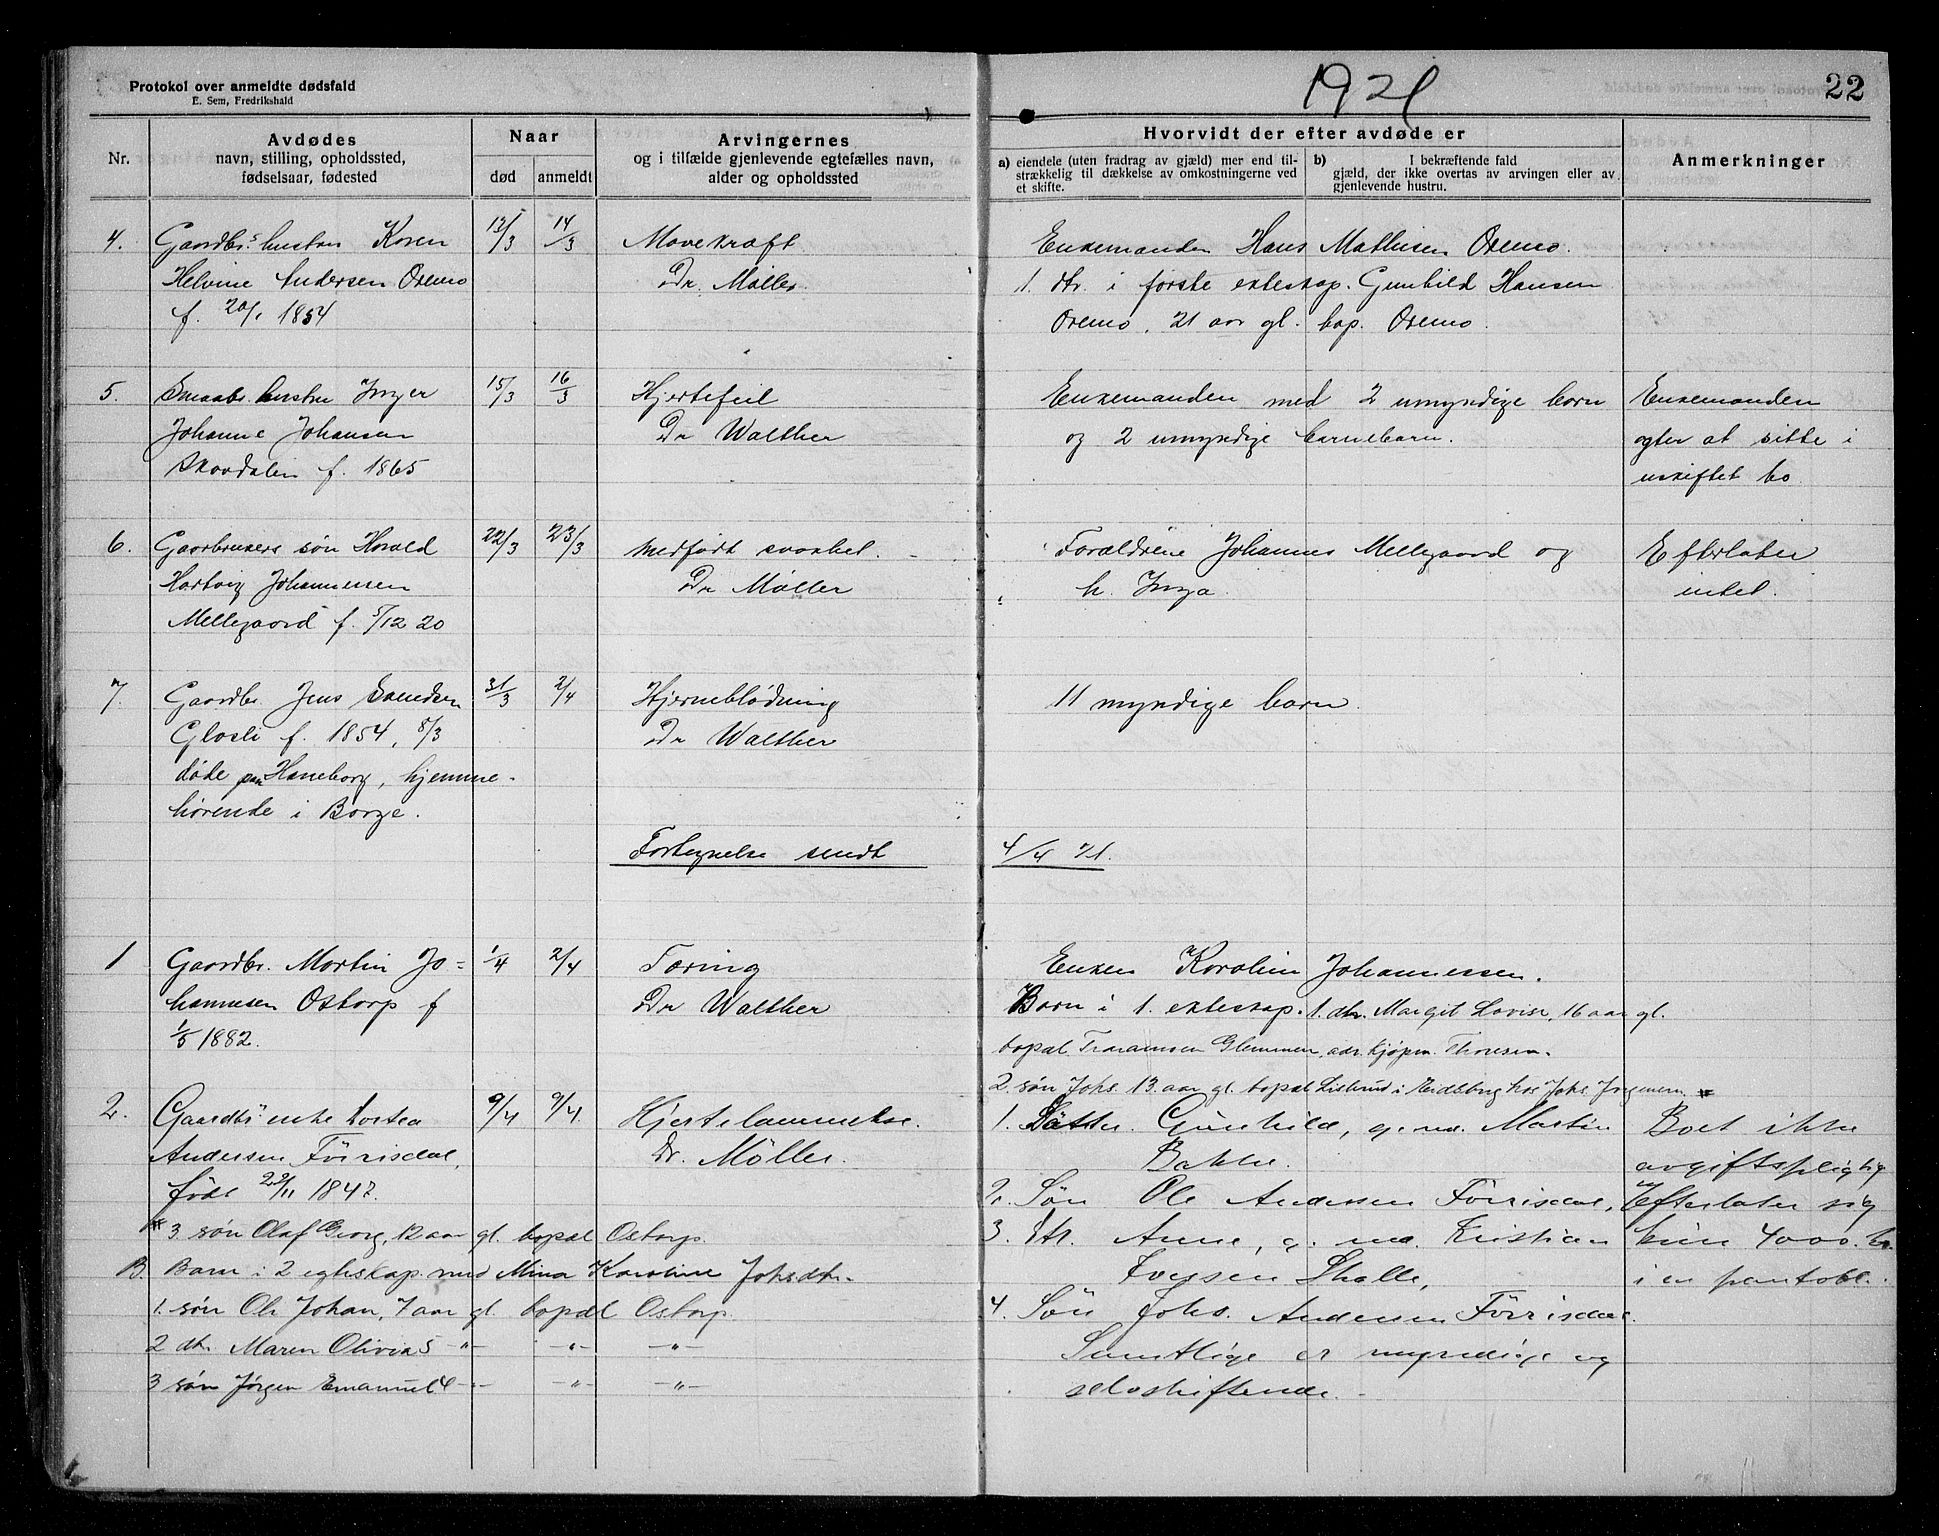 Protokol over anmeldte dødsfald
E. Sem, Fredrikshald
1921
22
Nr.
Avdødes
navn, stilling, opholdssted,
fødselsaar, fødested
Naar
død
anmeldt
Arvingernes
og i tilfælde gjenlevende egtefælles navn,
alder og opholdssted
Hvorvidt der efter avdøde er
a) eiendele (uten fradrag av gjæld) mer end til-
strækkelig til dækkelse av omkostningerne ved
et skifte.
b) I bekræftende fald
gjæld, der ikke overtas av arvingen eller av
gjenlevende hustru.
Anmerkninger
4. Gaardbr.s hustru Karen 12/3 14/3 Mavekræft Enkemanden Hans Mathisen Oremo.
Helvine Andersen Oremo Dr. Møller. 1. dtr. i første ekteskap. Gunhild Hansen
f. 20/1 1854 Oremo, 21 aar gl. bop. Oremo.
5. Smaabr. hustru Inger 15/3 16/3 Hjertefeil Enkemanden med 2 umyndige barn Enkemanden
Johanne Johansen Dr Walther og 2 umyndige barnebarn. agter at sitte i
Skovdalen f. 1865 uskiftet bo
6. Gaarbrukers søn Harald 22/3 23/3 Medfødt svakhet. Forældrene Johannes Mellegaard og Efterlater
Hartvig Johannessen Dr Møller h. Inga. intet.
Mellegaard f. 5/12 20
7. Gaardbr. Jens Svendsen 31/3 2/4 Hjerneblødning 11 myndige barn.
Glosli f. 1854, 8/3 Dr Walther
døde paa Haneborg, hjemme-
hørende i Borge.
Fortegnelse sendt 4/4 21.
1 Gaardbr. Martin Jo- 1/4 2/4 Tæring Enken Karoline Johannessen.
hannesen Ostorp f Dr Walther Barn i 1. ekteskap. 1. dtr. Margit Lovise, 16 aar gl.
1/5 1882. bopæl Traramoen Glemmen, adr. kjøpm. Thoresen.
2. søn Johs. 13 aar gl. bopæl Listrud i Eidsberg hos Johs. Jørgensen *
2. Gaardbr. enke Dortea 9/4 9/4. Hjertelammelse. 1. Datter. Gunhild, g. m. Martin Boet ikke
Andersen Förrisdal, Dr. Møller. Bakke. avgiftspligtig
født 22/11 1847. 2. Søn Ole Andersen Förrisdal, Efterlater sig
* 3 søn Olaf Georg, 12 aar gl. bopæl Ostorp. 3. Dtr. Anne, g. m. Kristian kun 4000. kr.
B. Barn i 2 egteskap med Mina Karoline Johsdtr. Iversen Skolle, i en pantobl.
1. søn Ole Johan, 7 aar gl. bopæl Ostorp. 4. Søn Johs. Andersen Förrisdal.
2 dtr. Maren Olivia 5 -"- -"- -"- Samtlige er myndige og
3 søn Jørgen Emanuel 4 -"- -"- -"- selvskiftende.